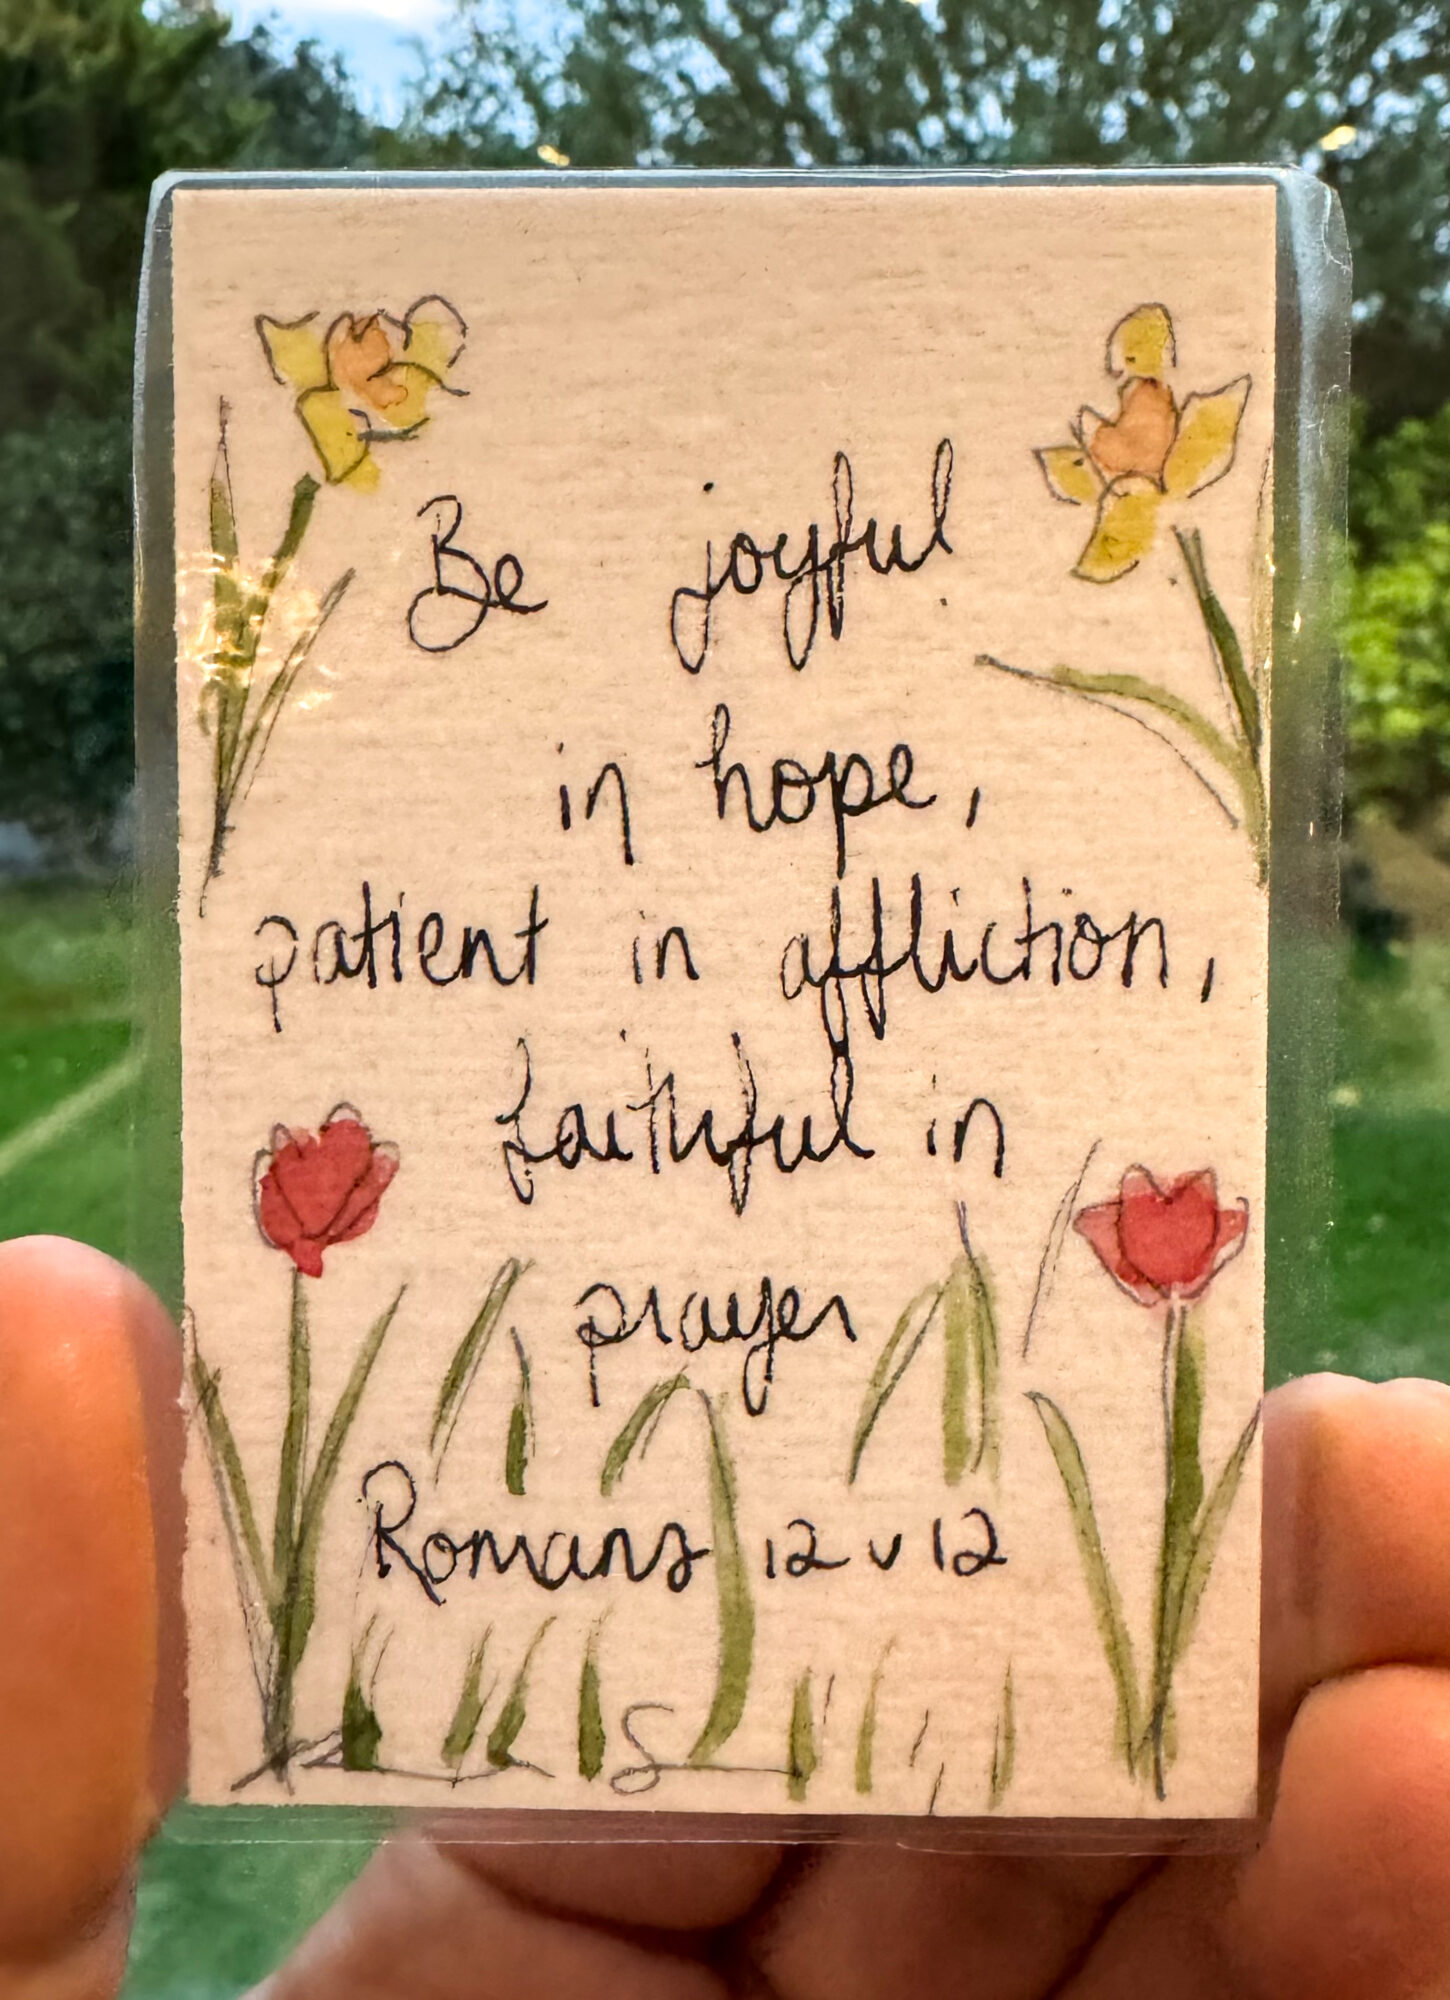 Be joyful
in hope,
patient in affliction,
faithful in
prayer
Romans 12 v 12